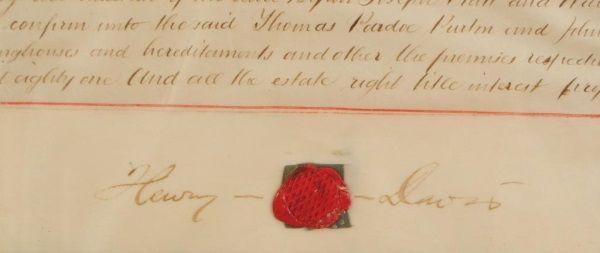 confirm unto the said Thomas Pardoe Purton and John
houses and hereditaments and other the premises respecti
t eighty one And all the estate right title interest prop
Henry - - Davis